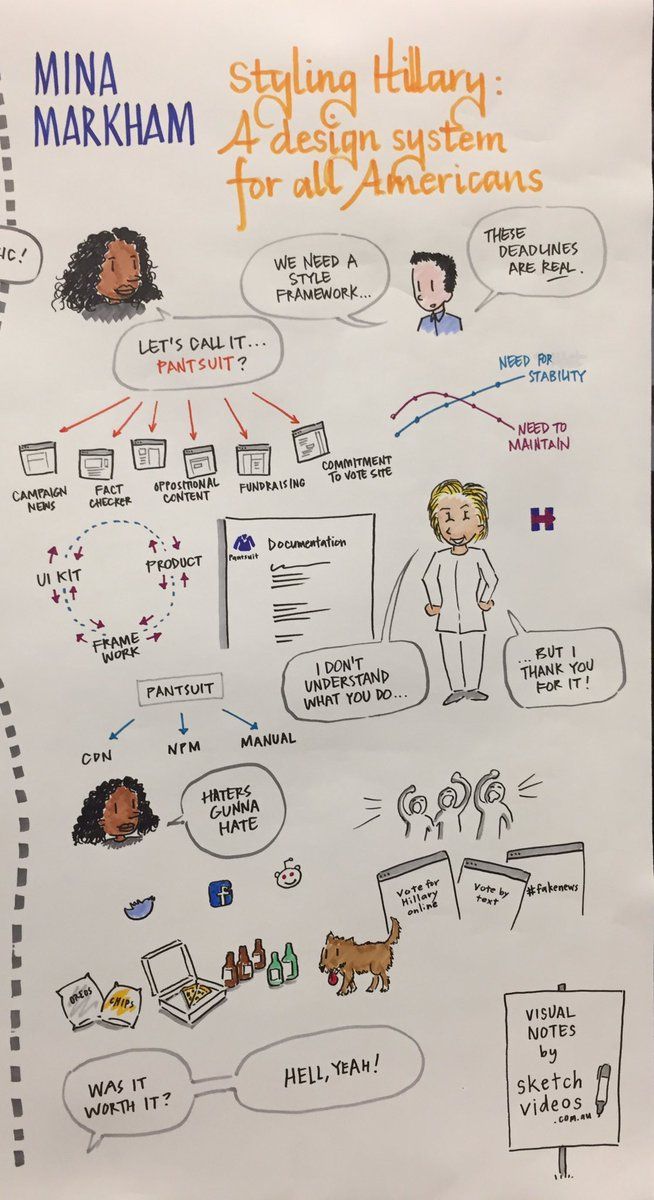 MINA
MARKHAM
Styling Hillary:
A design system
for all Americans
IC!
WE NEED A
STYLE
FRAMEWORK...
THESE
DEADLINES
ARE REAL.
LET'S CALL IT...
PANTSUIT?
NEED FOR
STABILITY
NEED TO
MAINTAIN
CAMPAIGN
NEWS
FACT
CHECKER
OPPOSITIONAL
CONTENT
FUNDRAISING
COMMITMENT
TO VOTE SITE
UI KIT
PRODUCT
FRAME
WORK
Pantsuit
Documentation
H
I DON'T
UNDERSTAND
WHAT YOU DO...
...BUT I
THANK YOU
FOR IT!
PANTSUIT
CDN
NPM
MANUAL
HATERS
GUNNA
HATE
f
Vote for
Hillary
online
Vote by
text
#fakenews
OREOS
CHIPS
WAS IT
WORTH IT?
HELL, YEAH!
VISUAL
NOTES
by
sketch
videos
.com.au